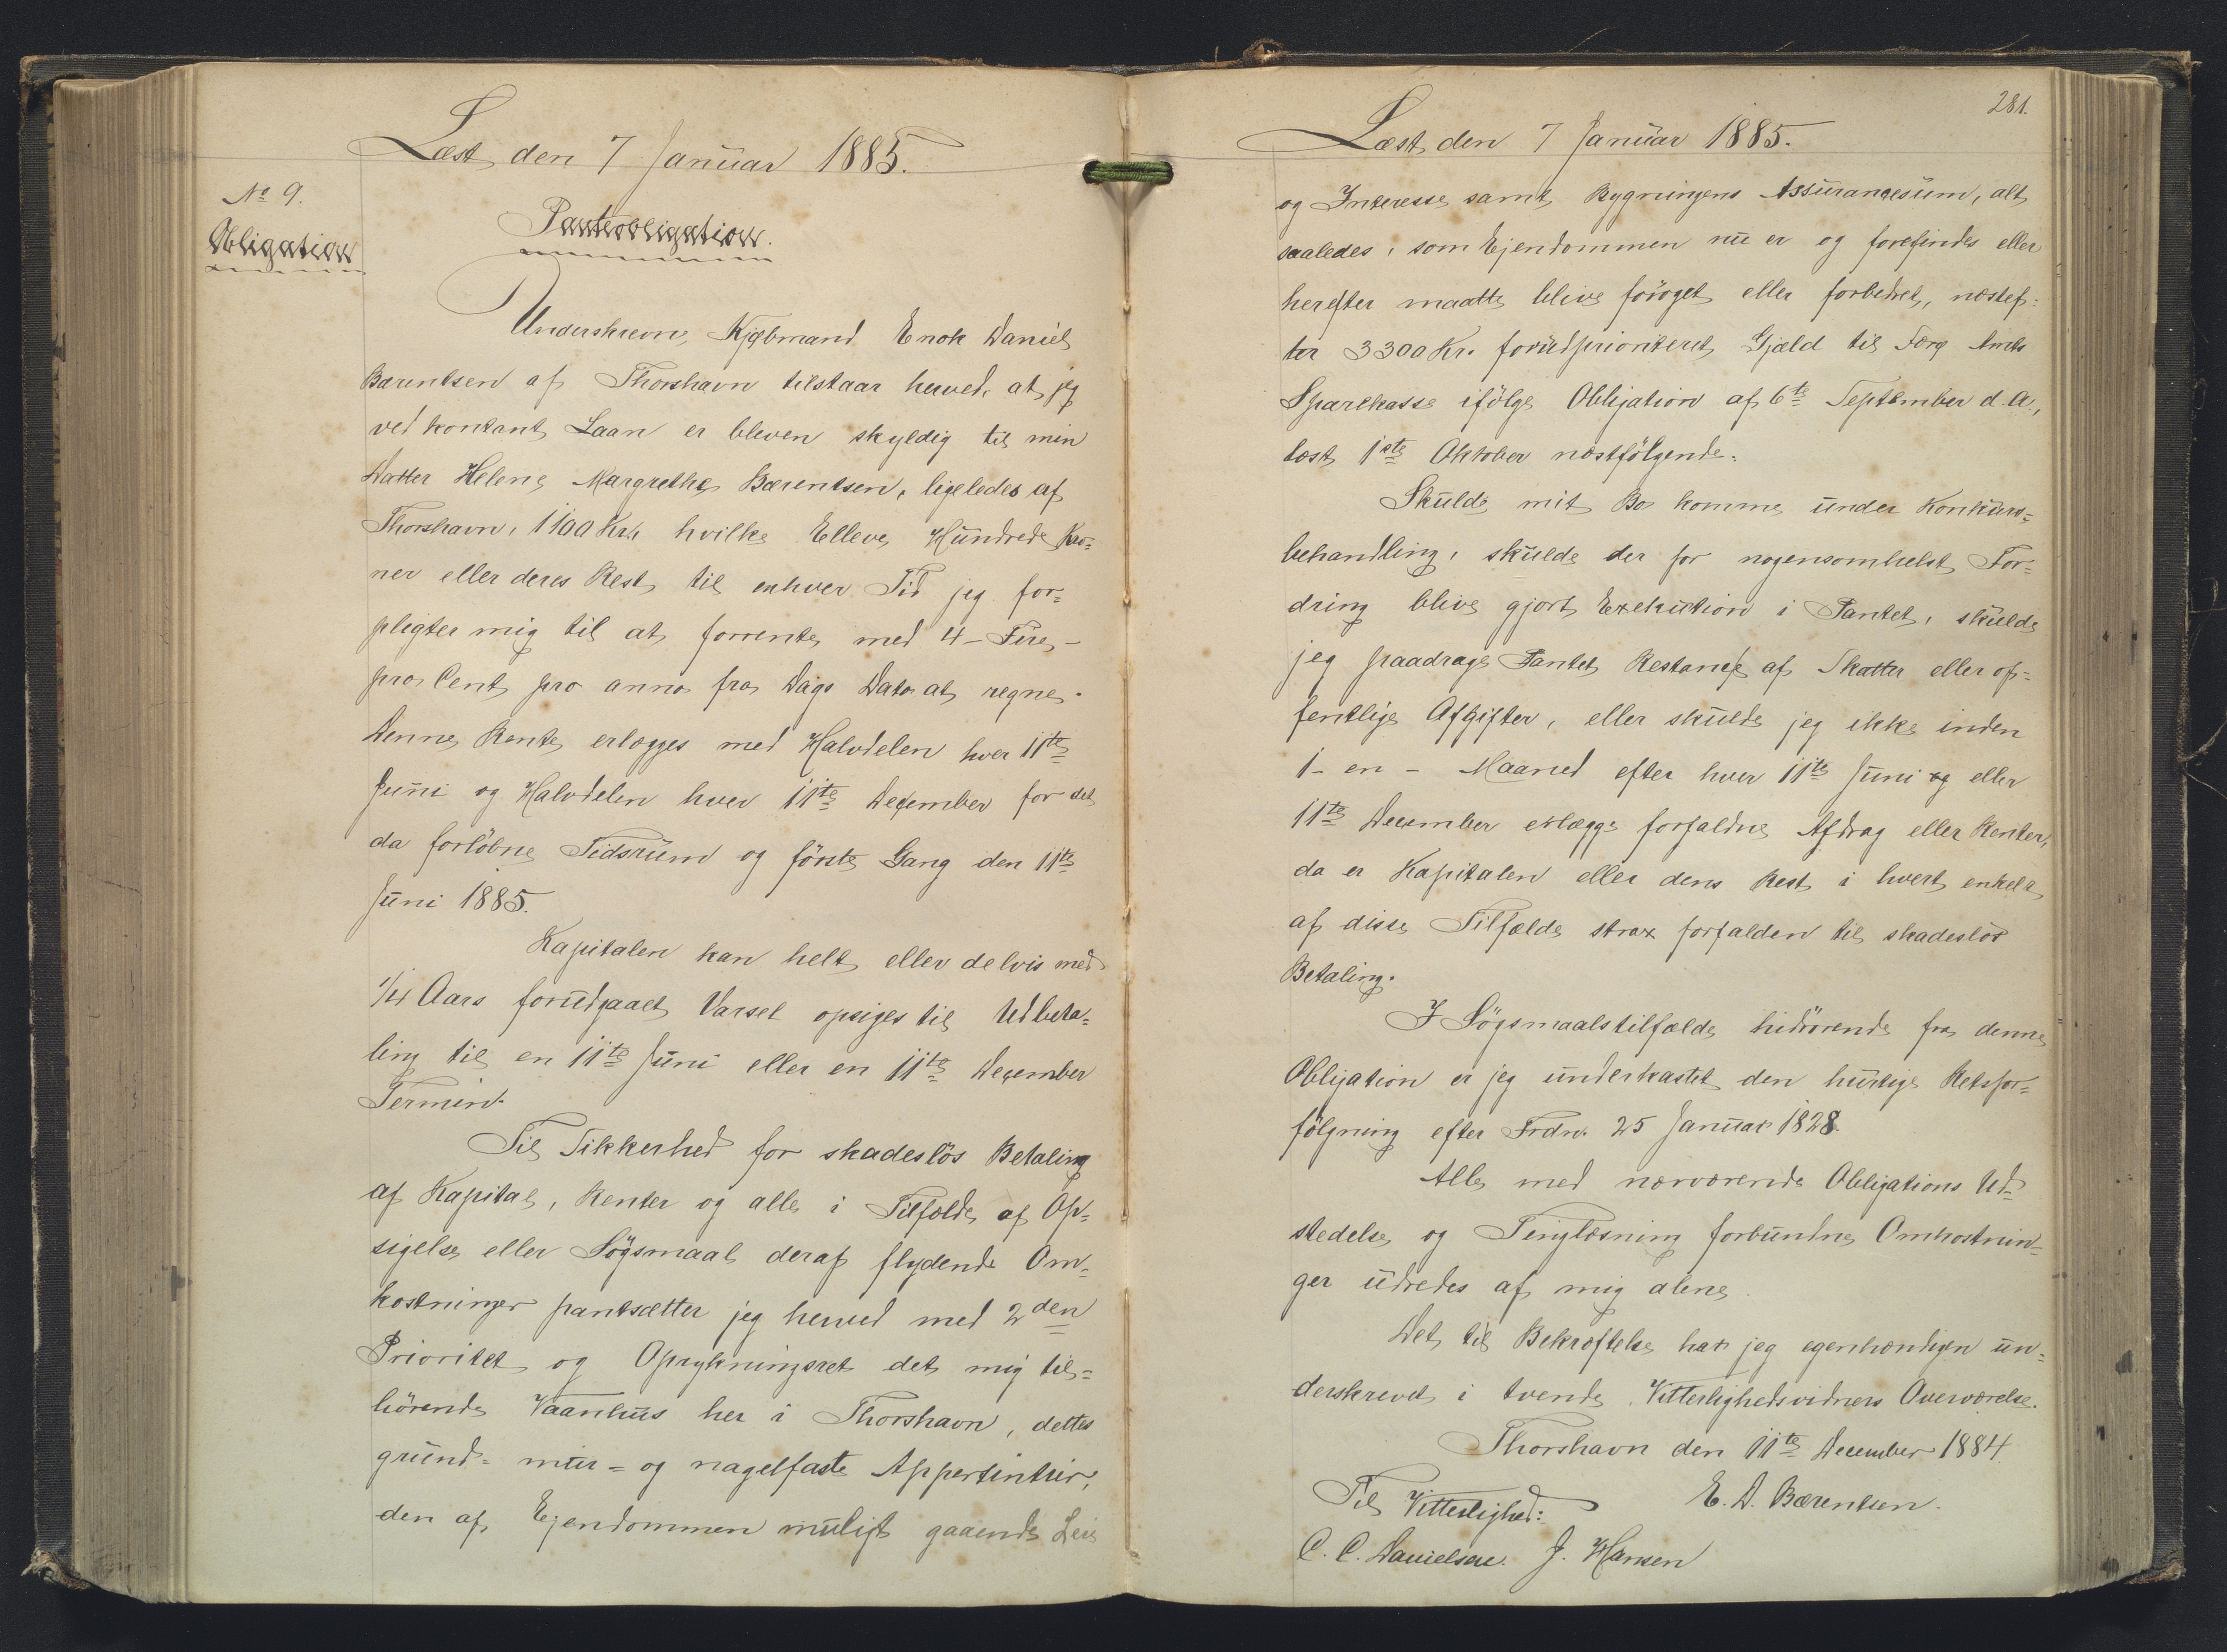 Læst den 7 Januar 1885.
No 9.
Obligation
Panteobligation.
Underskrevne, Kjøbmand Enok Daniel
Bærentsen af Thorshavn tilstaar herved, at jeg
ved kontant Laan er bleven skyldig til min
Datter Helene Margrethe Bærentsen, ligeledes af
Thorshavn, 1100 Kr., hvilke Elleve Hundrede Kro=
ner eller deres Rest til enhver Tid jeg for=
pligter mig til at forrente med 4 - Fire -
pro Cent pro anno fra Dags Dato at regne.
Denne Rente erlægges med Halvdelen hver 11te
Juni og Halvdelen hver 11te December for det
da forløbne Tidsrum og første Gang den 11te
Juni 1885.
Kapitalen kan helt eller delvis med
1/4 Aars forudgaaet Varsel opsiges til Udbeta=
ling til en 11te Juni eller en 11te December
Termin.
Til Sikkerhed for skadesløs Betaling
af Kapital, Renter og alle i Tilfælde af Op=
sigelse eller Søgsmaal deraf flydende Om=
kostninger pantsætter jeg herved med 2den
Prioritet og Oprykningsret det mig til=
hørende Vaanhus her i Thorshavn, dettes
grund= mur= og nagelfaste Appertintier,
den af Ejendommen muligt gaaende Leie
281.
Læst den 7 Januar 1885.
og Interesse samt Bygningens Assurancesum, alt
saaledes, som Ejendommen nu er og forefindes eller
herefter maatte blive forøget eller forbedret, næstef=
ter 3300 Kr. forudprioriteret Gjæld til Færø Amts
Sparekasse ifølge Obligation af 6te September d. A.,
læst 1ste Oktober næstfølgende.
Skulde mit Bo komme under Konkurs=
behandling, skulde der for nogensomhelst For=
dring blive gjort Exekution i Pantet, skulde
jeg paadrage Pantet Restance af Skatter eller of=
fentlige Afgifter, eller skulde jeg ikke inden
1 - en - Maaned efter hver 11te Juni og eller
11te December erlægge forfaldne Afdrag eller Renter,
da er Kapitalen eller dens Rest i hvert enkelt
af disse Tilfælde strax forfalden til skadesløs
Betaling.
I Søgsmaalstilfælde hidrørende fra denne
Obligation er jeg underkastet den hurtige Retsfor=
følgning efter Frdn. 25 Januar 1828.
Alle med nærværende Obligations Ud=
stedelse og Tinglæsning forbundne Omkostnin=
ger udredes af mig alene.
Det til Bekræftelse har jeg egenhændigen un=
derskrevet i tvende Vitterlighedsvidners Overværelse.
Thorshavn den 11te December 1884.
Til Vitterlighed: E. D. Bærentsen.
C. C. Danielsen. J. Hansen